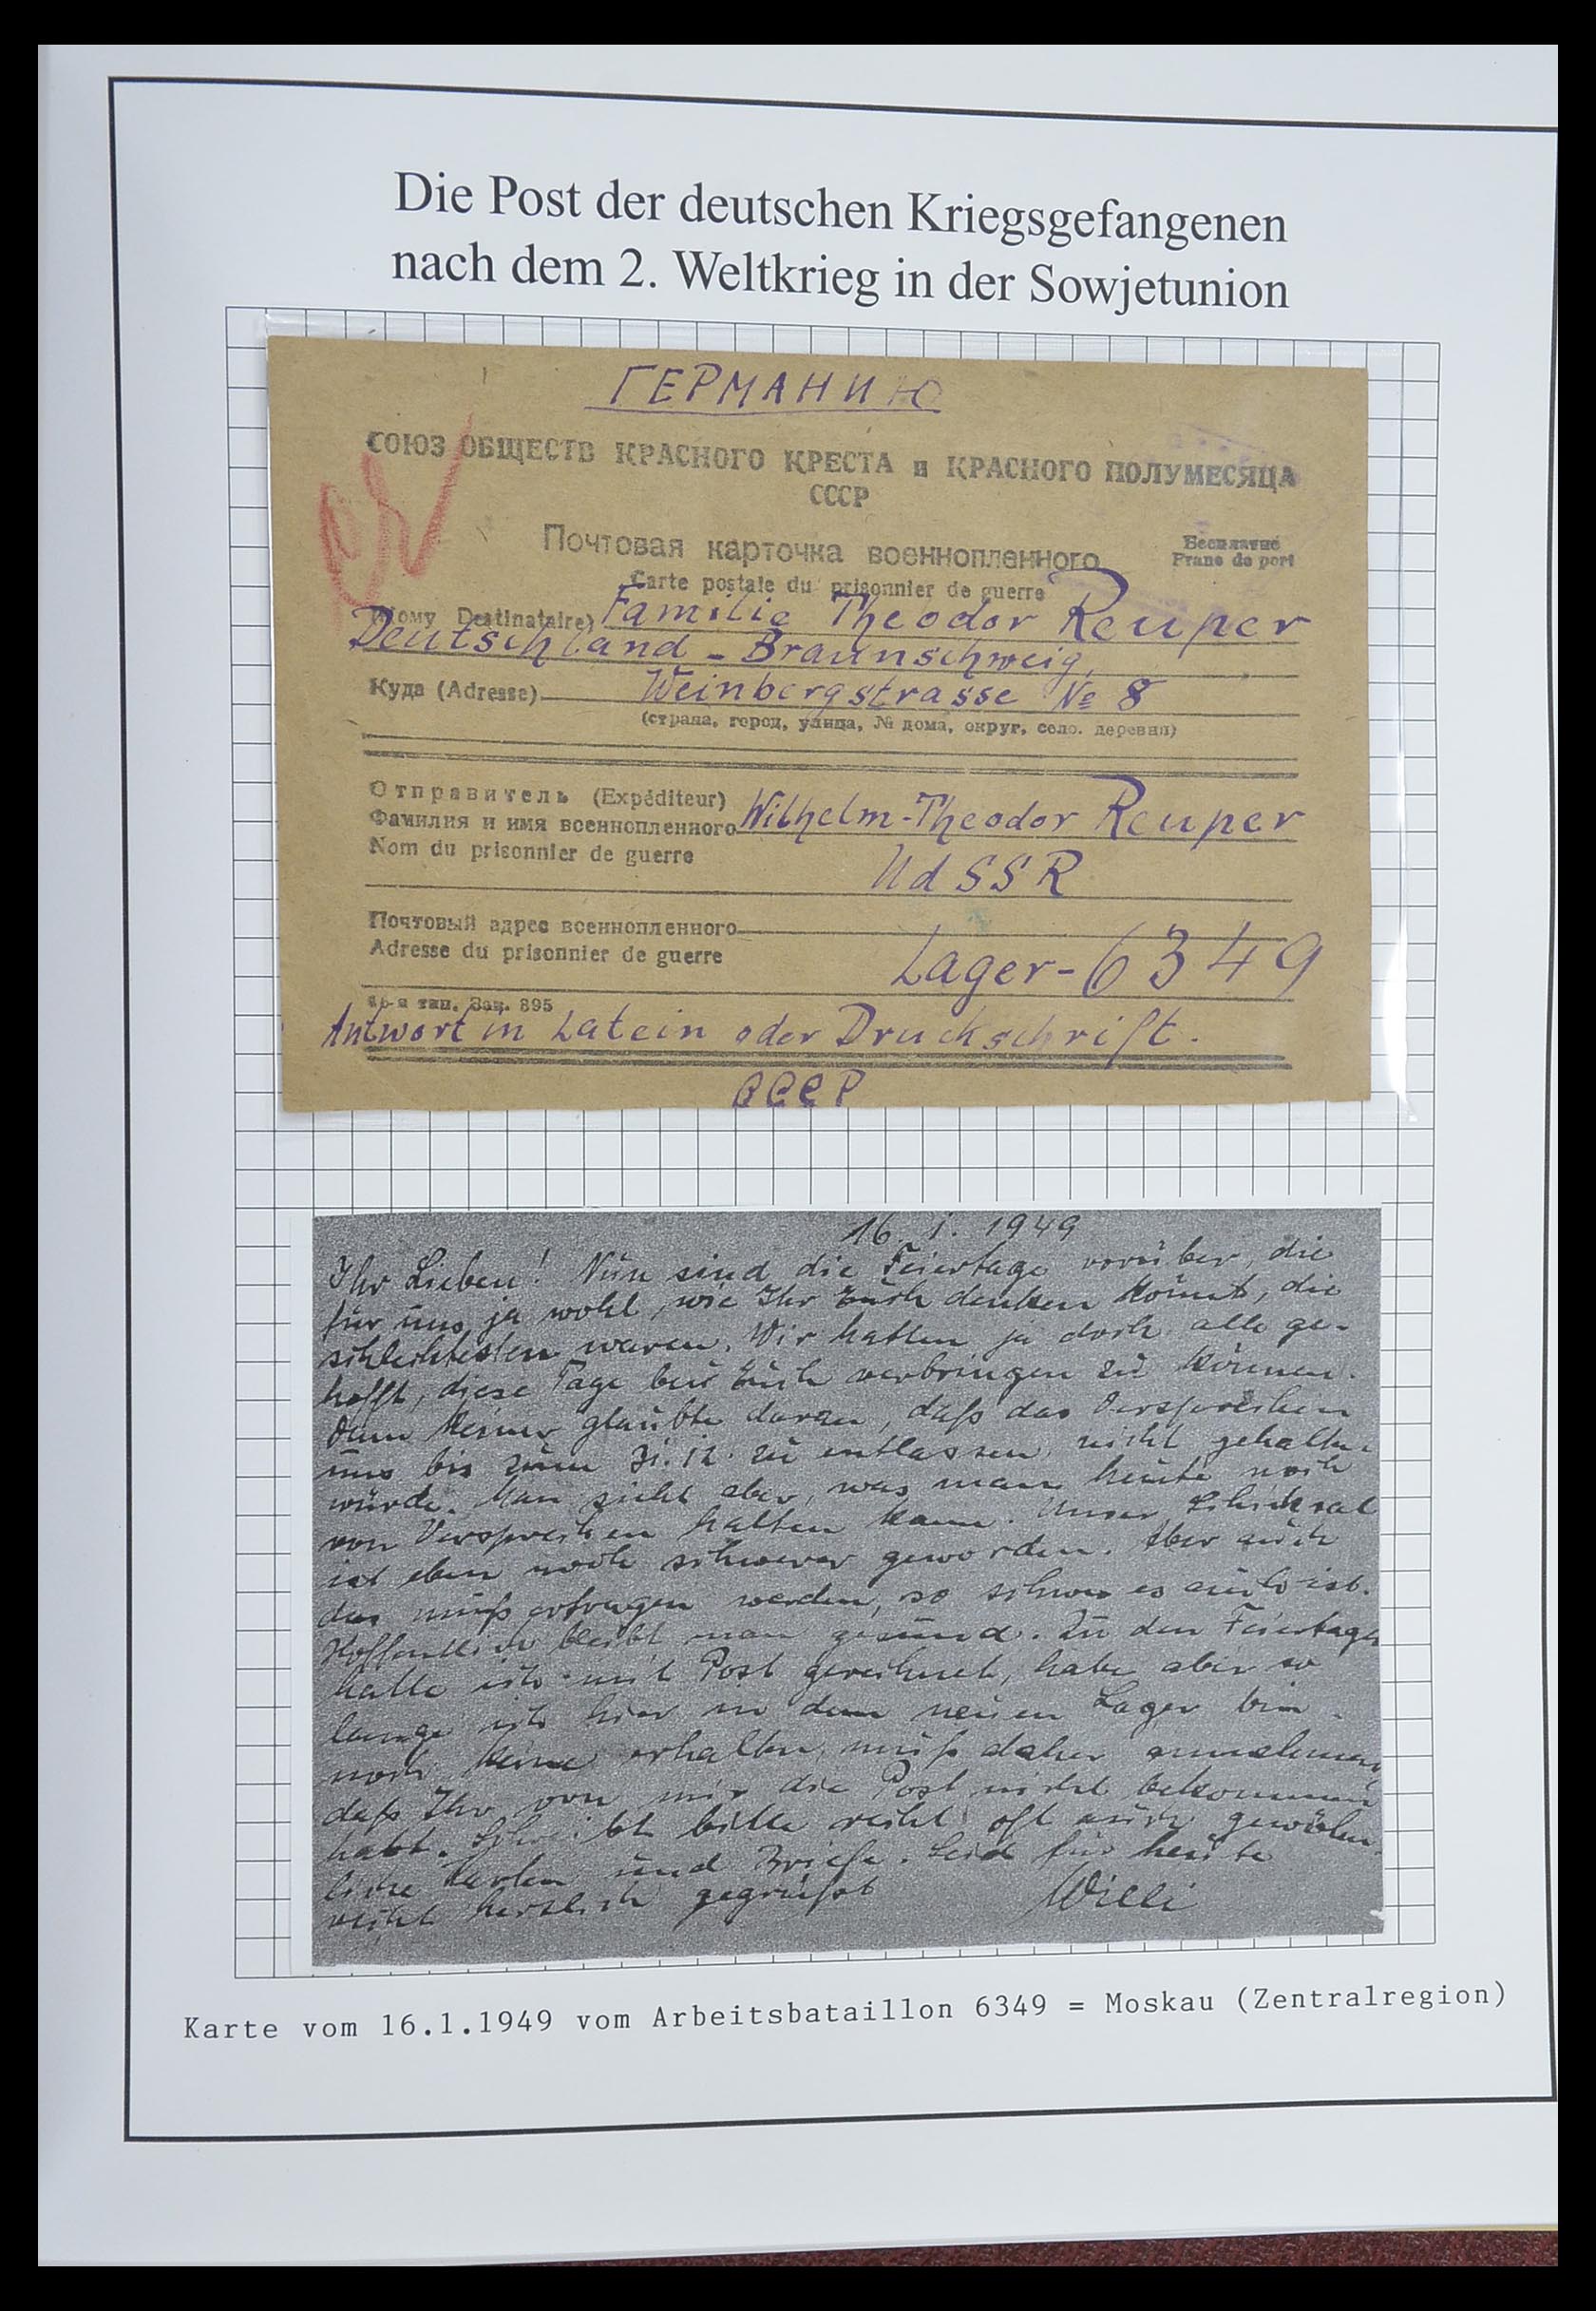 Die Post der deutschen Kriegsgefangenen
nach dem 2. Weltkrieg in der Sowjetunion
ГЕРМАНИЮ
СОЮЗ ОБЩЕСТВ КРАСНОГО КРЕСТА и КРАСНОГО ПОЛУМЕСЯЦА
СССР
Почтовая карточка военнопленного
Бесплатно
Carte postale du prisonnier de guerre
Franc de port
Кому Destinataire) Familie Theodor Reuper
Deutschland - Braunschweig,
Куда (Adresse) Weinbergstrasse № 8
(страна, город, улица, № дома, округ, село, деревня)
Отправитель (Expéditeur)
Фамилия и имя военнопленного Wilhelm-Theodor Reuper
Nom du prisonnier de guerre
UdSSR
Почтовый адрес военнопленного
Adresse du prisonnier de guerre
Lager-6349
16-я тип. Зак. 895
Antwort in Latein oder Druckschrift.
СССР
16. 1. 1949
Ihr Lieben! Nun sind die Feiertage vorüber, die
für uns ja wohl, wie Ihr Euch denken könnt, die
schlechtesten waren. Wir hatten ja doch alle ge-
hofft, diese Tage bei Euch verbringen zu können.
Denn keiner glaubte daran, daß das Versprechen
uns bis zum 31.12. zu entlassen nicht gehalten
würde. Man sieht aber, was man heute noch
von Versprechen halten kann. Unser Schicksal
ist eben noch schwerer geworden. Aber auch
das muß ertragen werden, so schwer es auch ist.
Hoffentlich bleibt man gesund. Zu den Feiertagen
hatte ich mit Post gerechnet, habe aber so
lange ich hier in dem neuen Lager bin
noch keine erhalten, muß daher annehmen,
daß Ihr von mir die Post nicht bekommen
habt. Schreibt bitte recht oft auch gewöhn-
liche Karten und Briefe. Seid für heute
recht herzlich gegrüßt Willi
Karte vom 16.1.1949 vom Arbeitsbataillon 6349 = Moskau (Zentralregion)